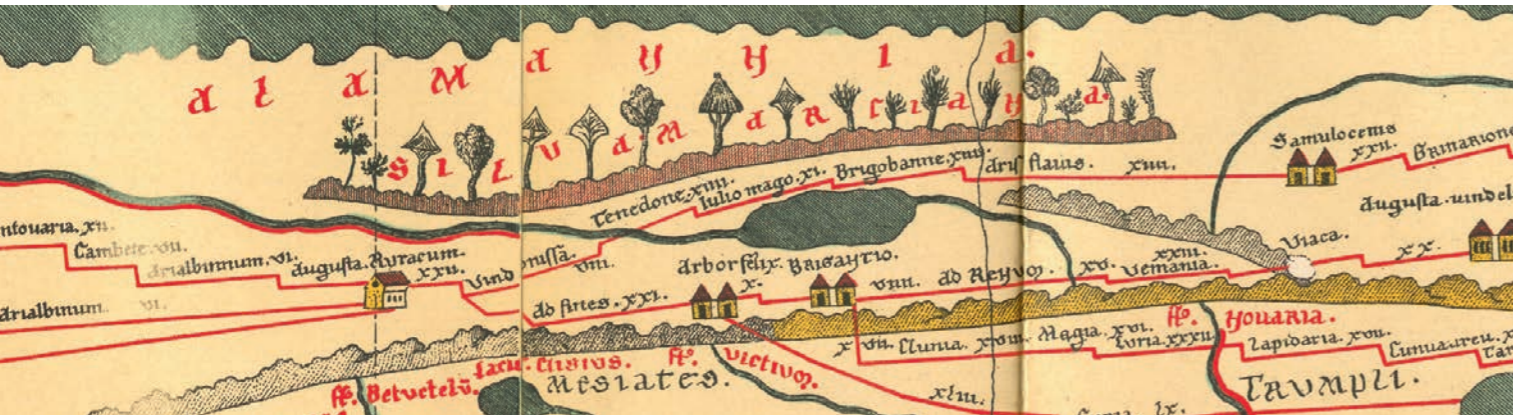 alaMaNNIa.
SILVa.MaRCIaNa.
Samulocenis
XXII. Grinarione
Tenedone. XIIII. Iuliomago. XI. Brigobanne. XIIII. Arisflavis. XIIII.
ntouaria. XII.
Cambete. VII.
Arialbinnum. VI.
Augusta. Ruracum.
XXII. Vind
onissa.
VIII.
Augusta. uindel
Viaca.
XX.
Arialbinum. VI.
Ad fines. XXI.
Arbor felix. Brigantio.
X.
VIIII. ad Renum. XV. Vemania.
XXIII.
X VII. Clunia. XVIII. Magia. XVI.
Curia. XXXII.
fl. Nouaria.
Lapidaria. XVII.
Cunuaureu. X
Tar
fl. Betuetelū.
Lacu. Clisius.
MESIATES.
fl. Victium.
XLIII.
TRVMPLI.
LX.